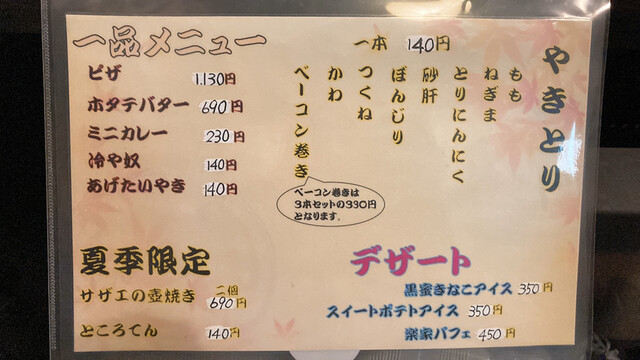 一品メニュー
ピザ 1.130円
ホタテバター 690円
ミニカレー 230円
冷や奴 140円
あげたいやき 140円
やきとり
一本 140円
もも
ねぎま
とりにんにく
砂肝
ぼんじり
つくね
かわ
ベーコン巻き
ベーコン巻きは
3本セットの390円
となります。
夏季限定
サザエの壺焼き 二個 690円
ところてん 140円
デザート
黒蜜きなこアイス 350円
スイートポテトアイス 350円
楽家パフェ 450円